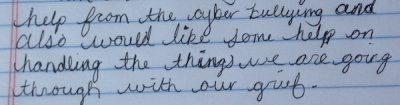 help from the cyber bullying and
also would like some help on
handling the things we are going
through with our grief.